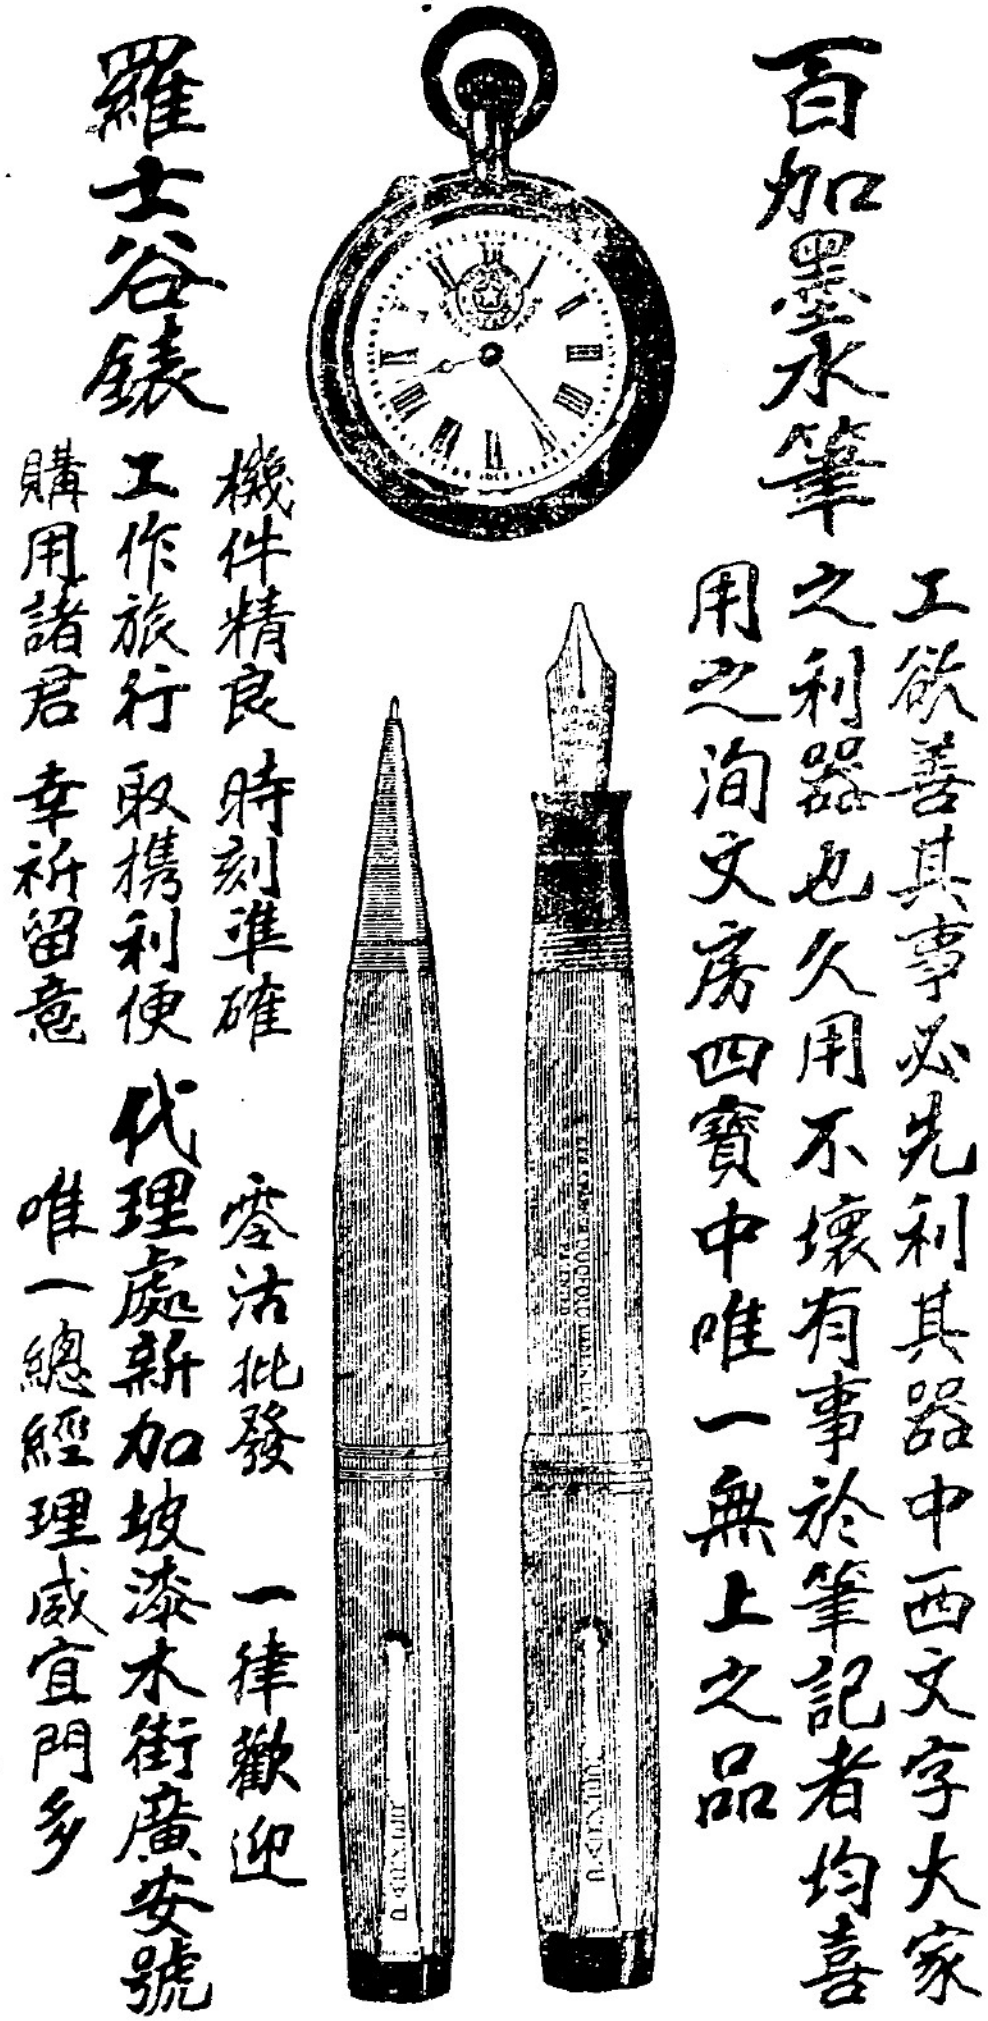 百加墨水筆
工欲善其事必先利其器中西文字大家
之利器也久用不壞有事於筆記者均喜
用之洵文房四寶中唯一無上之品
羅士谷錶
機件精良 時刻準確
工作旅行 取携利便
購用諸君 幸祈留意
零沽批發 一律歡迎
代理處新加坡漆木街廣安號
唯一總經理威宜門多
DUOFOLD